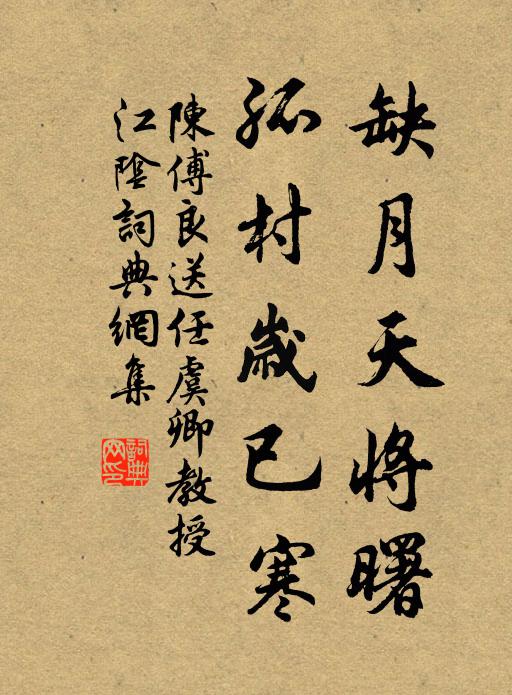 缺月天將曙
孤村歲已寒
陳傅良送任虞卿教授
江陰詞典網集
詞典網印